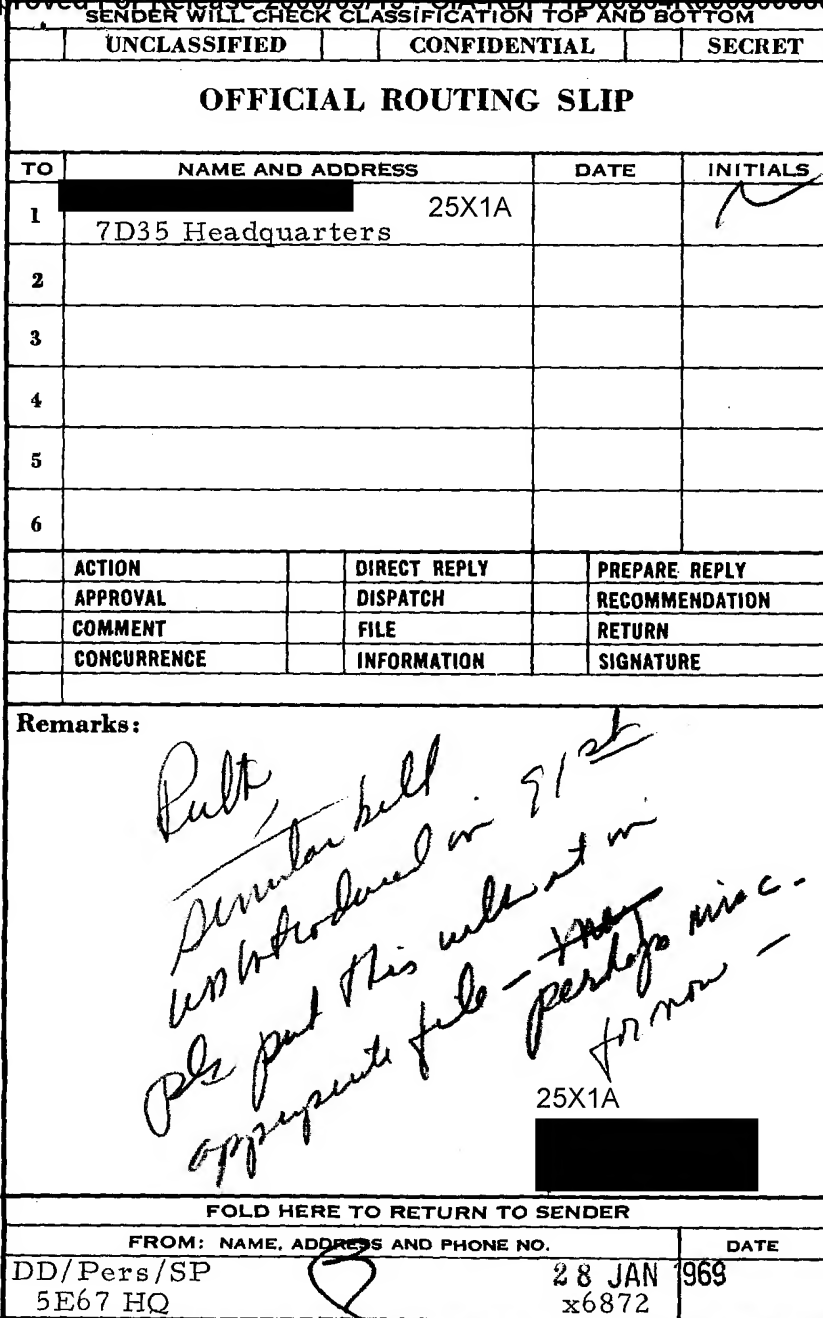 SENDER WILL CHECK CLASSIFICATION TOP AND BOTTOM
UNCLASSIFIED CONFIDENTIAL SECRET
OFFICIAL ROUTING SLIP
TO NAME AND ADDRESS DATE INITIALS
1 25X1A
7D35 Headquarters
2
3
4
5
6
ACTION DIRECT REPLY PREPARE REPLY
APPROVAL DISPATCH RECOMMENDATION
COMMENT FILE RETURN
CONCURRENCE INFORMATION SIGNATURE
Remarks:
Ruth,
similar bill
was introduced in 91st
pls put this in
appropriate file - perhaps misc.
for now -
25X1A
FOLD HERE TO RETURN TO SENDER
FROM: NAME, ADDRESS AND PHONE NO. DATE
DD/Pers/SP 28 JAN 1969
5E67 HQ x6872